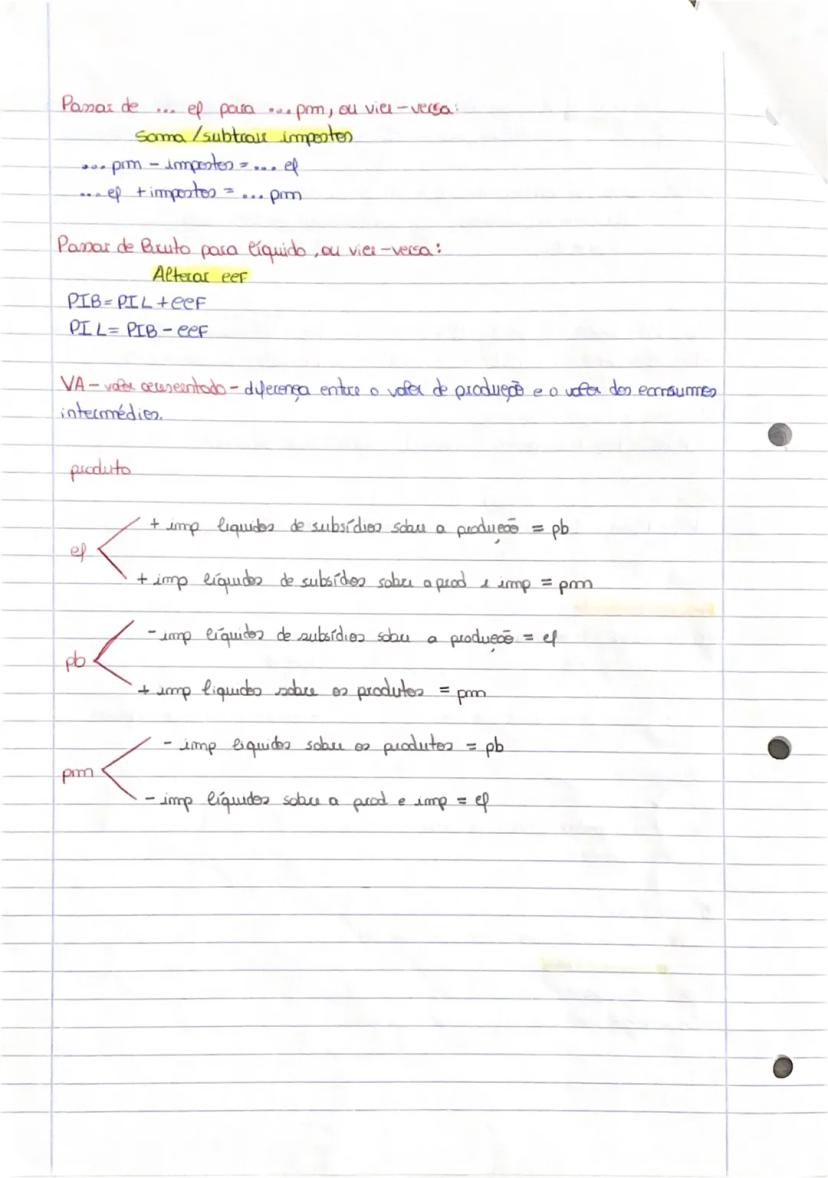 Passar de ... cf para ... pm, ou vice-versa:
Soma/subtrair impostos
... pm - impostos = ... cf
... cf + impostos = ... pm
Passar de Bruto para líquido, ou vice-versa:
Alterar ccF
PIB = PIL + ccF
PIL = PIB - ccF
VA - valor acrescentado - diferença entre o valor de produção e o valor dos consumos
intermédios.
produto
+ imp liquidos de subsídios sobre a produção = pb
cf
+ imp líquidos de subsídios sobre a prod e imp = pm
- imp líquidos de subsídios sobre a produção = cf
pb
+ imp liquidos sobre os produtos = pm
- imp líquidos sobre os produtos = pb
pm
- imp líquidos sobre a prod e imp = cf